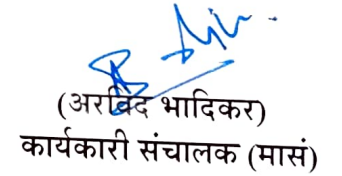 (अरविंद भादिकर)
कार्यकारी संचालक (मासं)